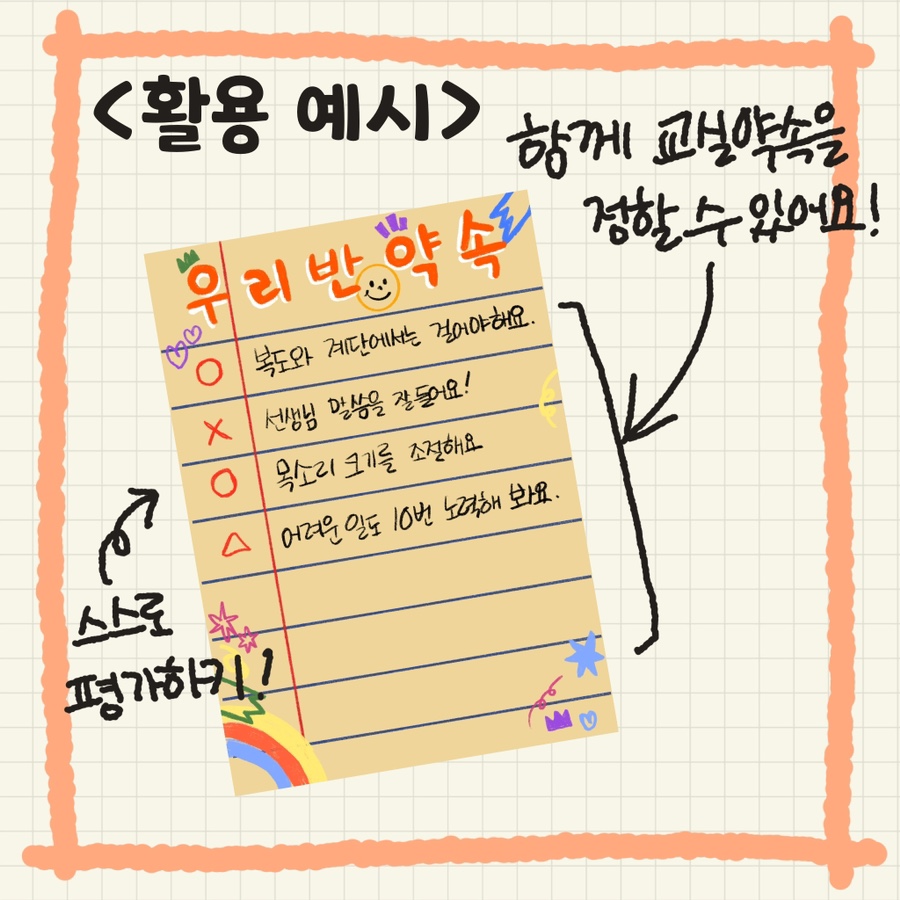 <활용 예시>
함께 교실약속을
정할 수 있어요!
우리반 약속
O 복도와 계단에서는 걸어야해요.
X 선생님 말씀을 잘 들어요!
O 목소리 크기를 조절해요
△ 어려운 일도 10번 노력해 봐요.
스스로
평가하기!